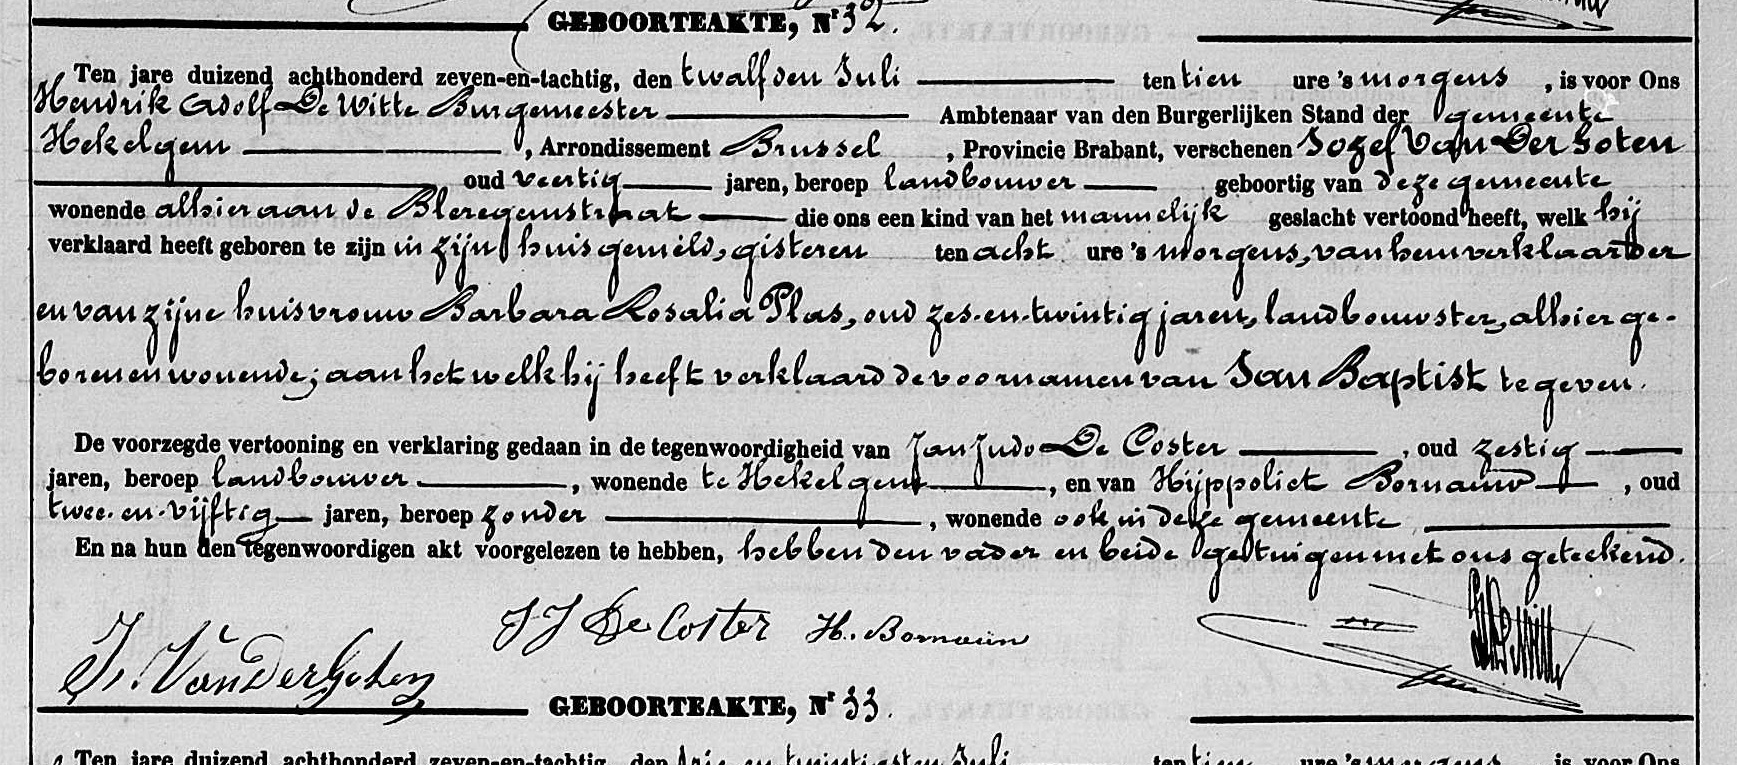 GEBOORTEAKTE, Nr 32.
Ten jare duizend achthonderd zeven-en-tachtig, den twalfden Juli ten tien ure 's morgens, is voor Ons
Hendrik Adolf De Witte Burgemeester Ambtenaar van den Burgerlijken Stand der gemeente
Hekelgem, Arrondissement Brussel, Provincie Brabant, verschenen Jozef Van Der Goten
oud veertig jaren, beroep landbouwer geboortig van deze gemeente
wonende alhier aan de Bleregemstraat die ons een kind van het mannelijk geslacht vertoond heeft, welk hij
verklaard heeft geboren te zijn in zijn huis gemeld, gisteren ten acht ure 's morgens, van hem verklaarder
en van zijne huisvrouw Barbara Rosalia Plas, oud zes-en-twintig jaren, landbouwster, alhier ge-
boren en wonende; aan het welk hij heeft verklaard de voornamen van Jan Baptist te geven.
De voorzegde vertooning en verklaring gedaan in de tegenwoordigheid van Jan Judo De Coster, oud zestig
jaren, beroep landbouwer, wonende te Hekelgem, en van Hijppoliet Bornauw, oud
twee-en-vijftig jaren, beroep zonder, wonende ook in deze gemeente
En na hun den tegenwoordigen akt voorgelezen te hebben, hebben den vader en beide getuigen met ons geteekend.
J J De Coster H. Bornauw
J. Van Der Goten
GEBOORTEAKTE, Nr 33.
Ten jare duizend achthonderd zeven-en-tachtig, den drie en twintigsten Juli ten tien ure 's morgens is voor Ons